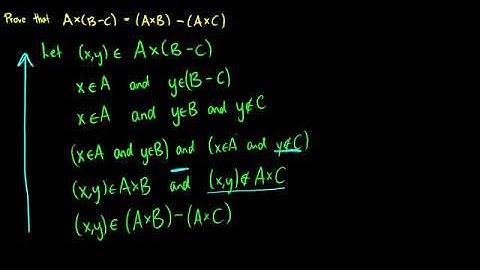 Prove that A×(B-C) = (A×B) - (A×C)
Let (x,y) ∈ A×(B-C)
x∈A and y∈(B-C)
x∈A and y∈B and y∉C
(x∈A and y∈B) and (x∈A and y∉C)
(x,y)∈A×B and (x,y)∉A×C
(x,y)∈(A×B)-(A×C)